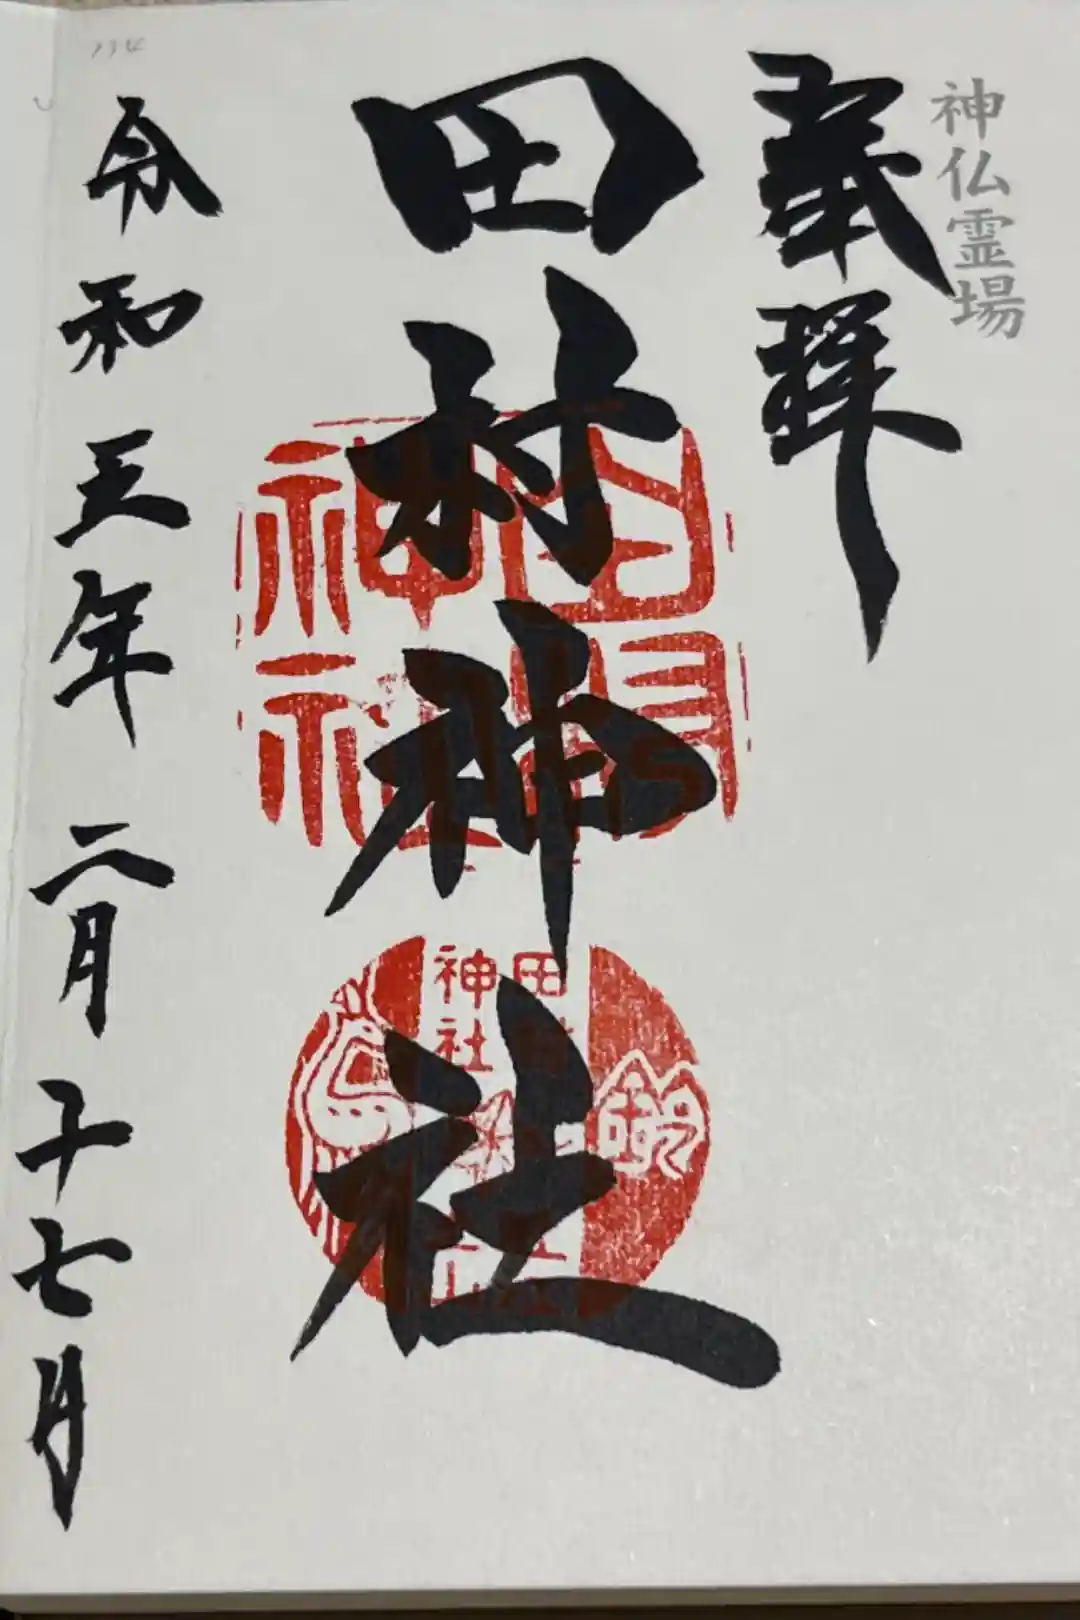 神仏霊場
奉拝
田村神社
田村神社
田村神社
鈴
令和三年二月十七日
134